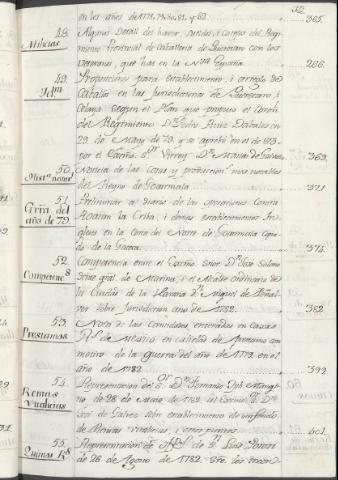 32
en los años de 1778, 79, 80, 81, y 82. 305.
48. Milicias
Algunos Detall del haver, sueldos, i cuerpo del Regi-
miento Provincial de Caballeria de Queretaro con los
Veteranos, que hai en la Nva España. 266.
49. Idm
Proposiciones para establecimiento, i arreglo de
Caballos en las Jurisdicciones de Queretaro, i
Celaya segun el Plan que propuso el Coronl
del Regimiento Dn Pedro Ruiz Dabalos en
29 de Mayo de 79, y se aprobó en el de 83
por el Excmo. Sor Virrey Dn Matias de Galvez. 369.
50. Hista natural
Noticia de las Cosas y producciones mas notables
del Reyno de Goatemala 371
51. Grra del año de 79.
Preliminar al Diario de las operaciones Contra
Roatan la Criba, i demas establecimientos In-
gleses en la Costa del Norte de Goatemala
de la Guerra. 374.
52. Competencs
Competencia entre el Excmo Señor Dn José Solano
gral. de Marina, i el Alcalde ordinario de
la Ciudad de la Havana Dn Miguel de
por sobre Jurisdiccion año de 1782. 382
53. Prestamos
Nota de las Cantidades, enteradas en Caxas
Rs de Mexico en calidad de prestamo con
motivo de la Guerra del año de 1779 en el
año de 1782 392
54. Rentas Vitalicias
Representacion del Sr Dn Fernando José Mangi-
no de 28 de de 1782 al Excmo Sr Dn
José de Galvez sobre establecimiento de un fondo
de Rentas Vitalicias, i otros puntos 401.
55. Quinas Rs
Representacion de Dn
de 26 de Agosto de 1782. sre los